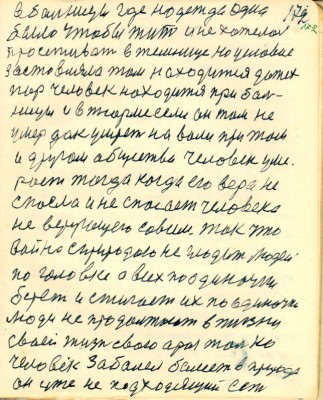 в больницы где надежда одна 172
было чтобы жить и не хотелось
просепиват в темнице но условие
заставляла там находится до тех
пор человек находится при бол-
ницы и в тюрме если он там не
умер дак умрет на воли при том
и другом обществе человек уми.
рает тогда когда его вера не
спосла и не спасает человека
не верующего совсем. так што
война с природаю не гладит людей
по головке а всех по одиночки
берет и стигает их по одиночки
люди не продолжают в жизни
своей жизн свою а раз только
человек заболел болеет в природе
он уже не подходящий сет